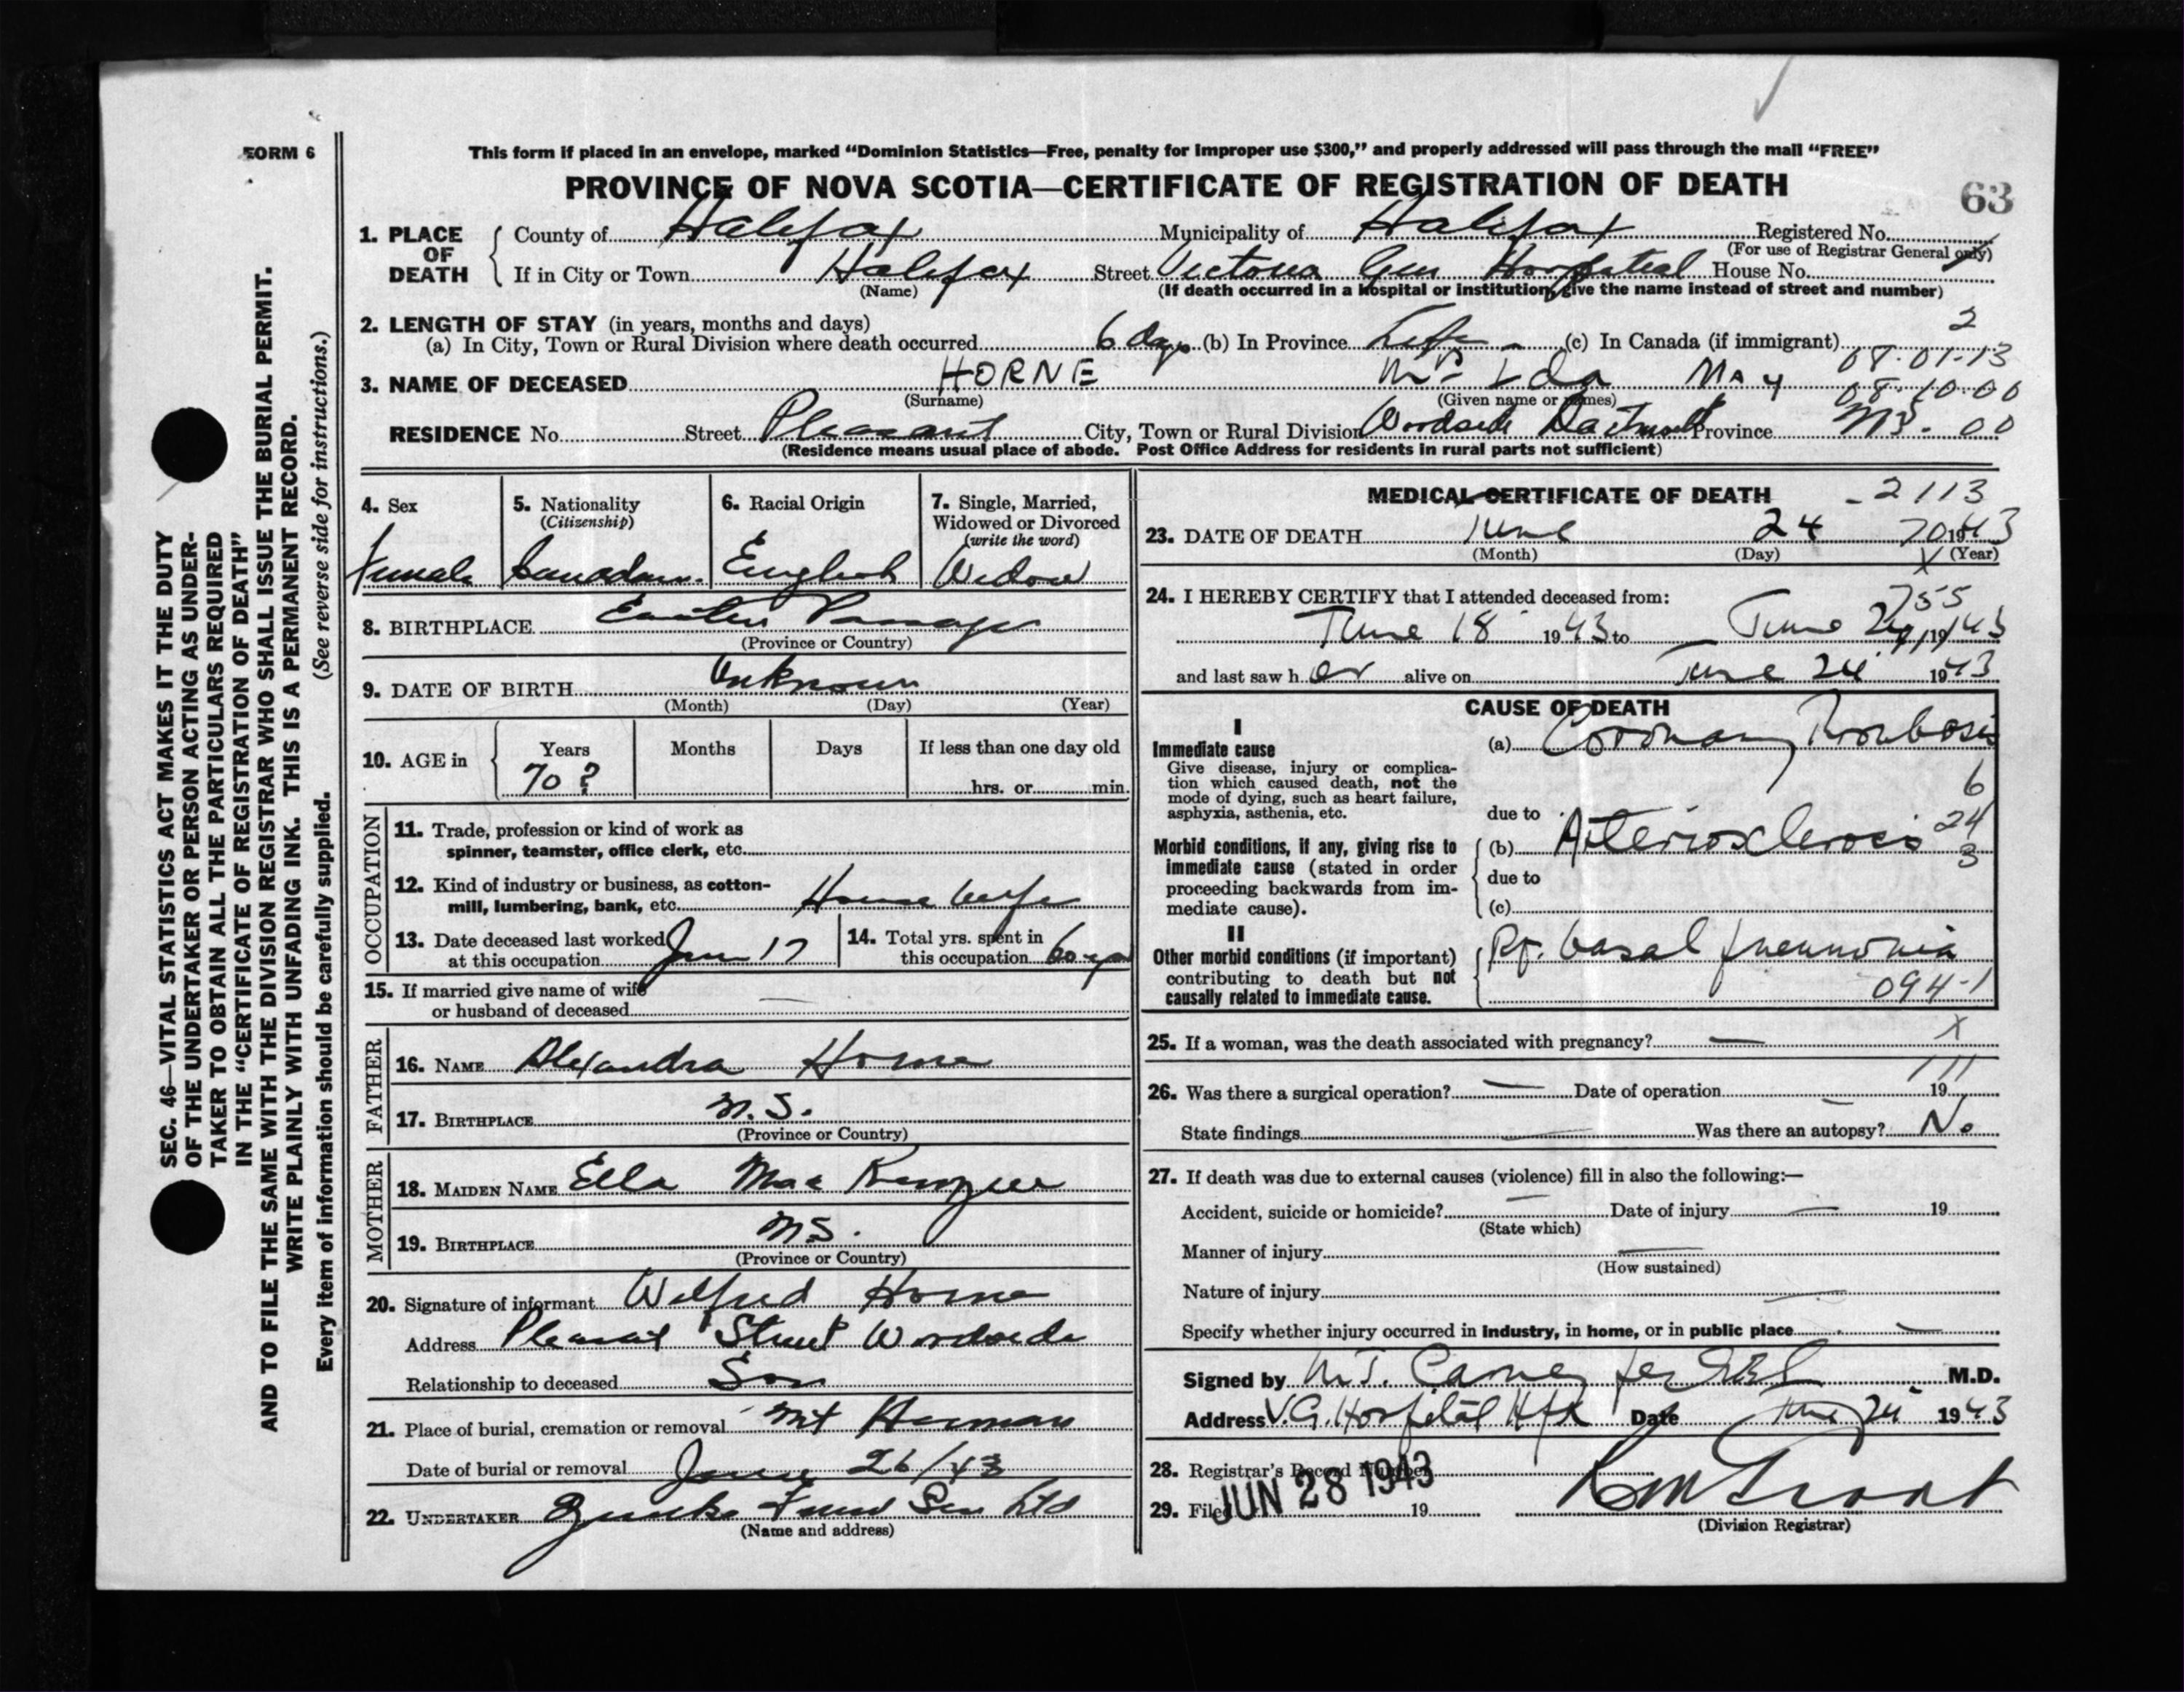 FORM 6
This form if placed in an envelope, marked “Dominion Statistics—Free, penalty for improper use $300,” and properly addressed will pass through the mail “FREE”
PROVINCE OF NOVA SCOTIA—CERTIFICATE OF REGISTRATION OF DEATH
63
1. PLACE OF DEATH County of Halifax Municipality of Halifax Registered No.
(For use of Registrar General only)
If in City or Town Halifax Street Victoria Gen Hospital House No.
(Name) (If death occurred in a hospital or institution, give the name instead of street and number)
2. LENGTH OF STAY (in years, months and days) 2
(a) In City, Town or Rural Division where death occurred 6 days (b) In Province Life (c) In Canada (if immigrant)
08-01-13
3. NAME OF DECEASED HORNE Mrs Ida May 08-10-00
(Surname) (Given name or names)
RESIDENCE No. Street Pleasant City, Town or Rural Division Woodside Dartmouth Province N.S. 00
(Residence means usual place of abode. Post Office Address for residents in rural parts not sufficient)
4. Sex
Female
5. Nationality
(Citizenship)
Canadian
6. Racial Origin
English
7. Single, Married,
Widowed or Divorced
(write the word)
Widow
8. BIRTHPLACE Eastern Passage
(Province or Country)
9. DATE OF BIRTH Unknown
(Month) (Day) (Year)
10. AGE in Years Months Days If less than one day old
70 ? hrs. or min.
OCCUPATION
11. Trade, profession or kind of work as
spinner, teamster, office clerk, etc.
12. Kind of industry or business, as cotton-
mill, lumbering, bank, etc. House Wife
13. Date deceased last worked
at this occupation June 17
14. Total yrs. spent in
this occupation 60 yrs
15. If married give name of wife
or husband of deceased —
FATHER
16. NAME Alexandra Horne
17. BIRTHPLACE N.S.
(Province or Country)
MOTHER
18. MAIDEN NAME Ella Mac Kenzie
19. BIRTHPLACE N.S.
(Province or Country)
20. Signature of informant Wilfred Horne
Address Pleasant Street Woodside
Relationship to deceased Son
21. Place of burial, cremation or removal Mt Herman
Date of burial or removal June 26/43
22. UNDERTAKER Ltd
(Name and address)
MEDICAL CERTIFICATE OF DEATH - 2113
23. DATE OF DEATH June 24 70 1943
(Month) (Day) X (Year)
24. I HEREBY CERTIFY that I attended deceased from: 755
June 18 1943 to June 24, 1943
and last saw her alive on June 24 1943
CAUSE OF DEATH
I
Immediate cause
Give disease, injury or complica-
tion which caused death, not the
mode of dying, such as heart failure,
asphyxia, asthenia, etc.
(a) Coronary Thrombosis
6
due to
Morbid conditions, if any, giving rise to
immediate cause (stated in order
proceeding backwards from im-
mediate cause).
(b) Arteriosclerosis 24
3
due to
(c)
II
Other morbid conditions (if important)
contributing to death but not
causally related to immediate cause.
Rt. basal pneumonia
094-1
25. If a woman, was the death associated with pregnancy? — X
26. Was there a surgical operation? — Date of operation — 19
111
State findings — Was there an autopsy? No
27. If death was due to external causes (violence) fill in also the following:—
Accident, suicide or homicide? — Date of injury — 19
(State which)
Manner of injury —
(How sustained)
Nature of injury —
Specify whether injury occurred in industry, in home, or in public place —
Signed by M.D.
Address V.G. Hospital Hfx Date June 24 1943
28. Registrar's Record Number
29. Filed JUN 28 1943 19
(Division Registrar)
SEC. 46—VITAL STATISTICS ACT MAKES IT THE DUTY
OF THE UNDERTAKER OR PERSON ACTING AS UNDER-
TAKER TO OBTAIN ALL THE PARTICULARS REQUIRED
IN THE “CERTIFICATE OF REGISTRATION OF DEATH”
AND TO FILE THE SAME WITH THE DIVISION REGISTRAR WHO SHALL ISSUE THE BURIAL PERMIT.
WRITE PLAINLY WITH UNFADING INK. THIS IS A PERMANENT RECORD.
Every item of information should be carefully supplied. (See reverse side for instructions.)